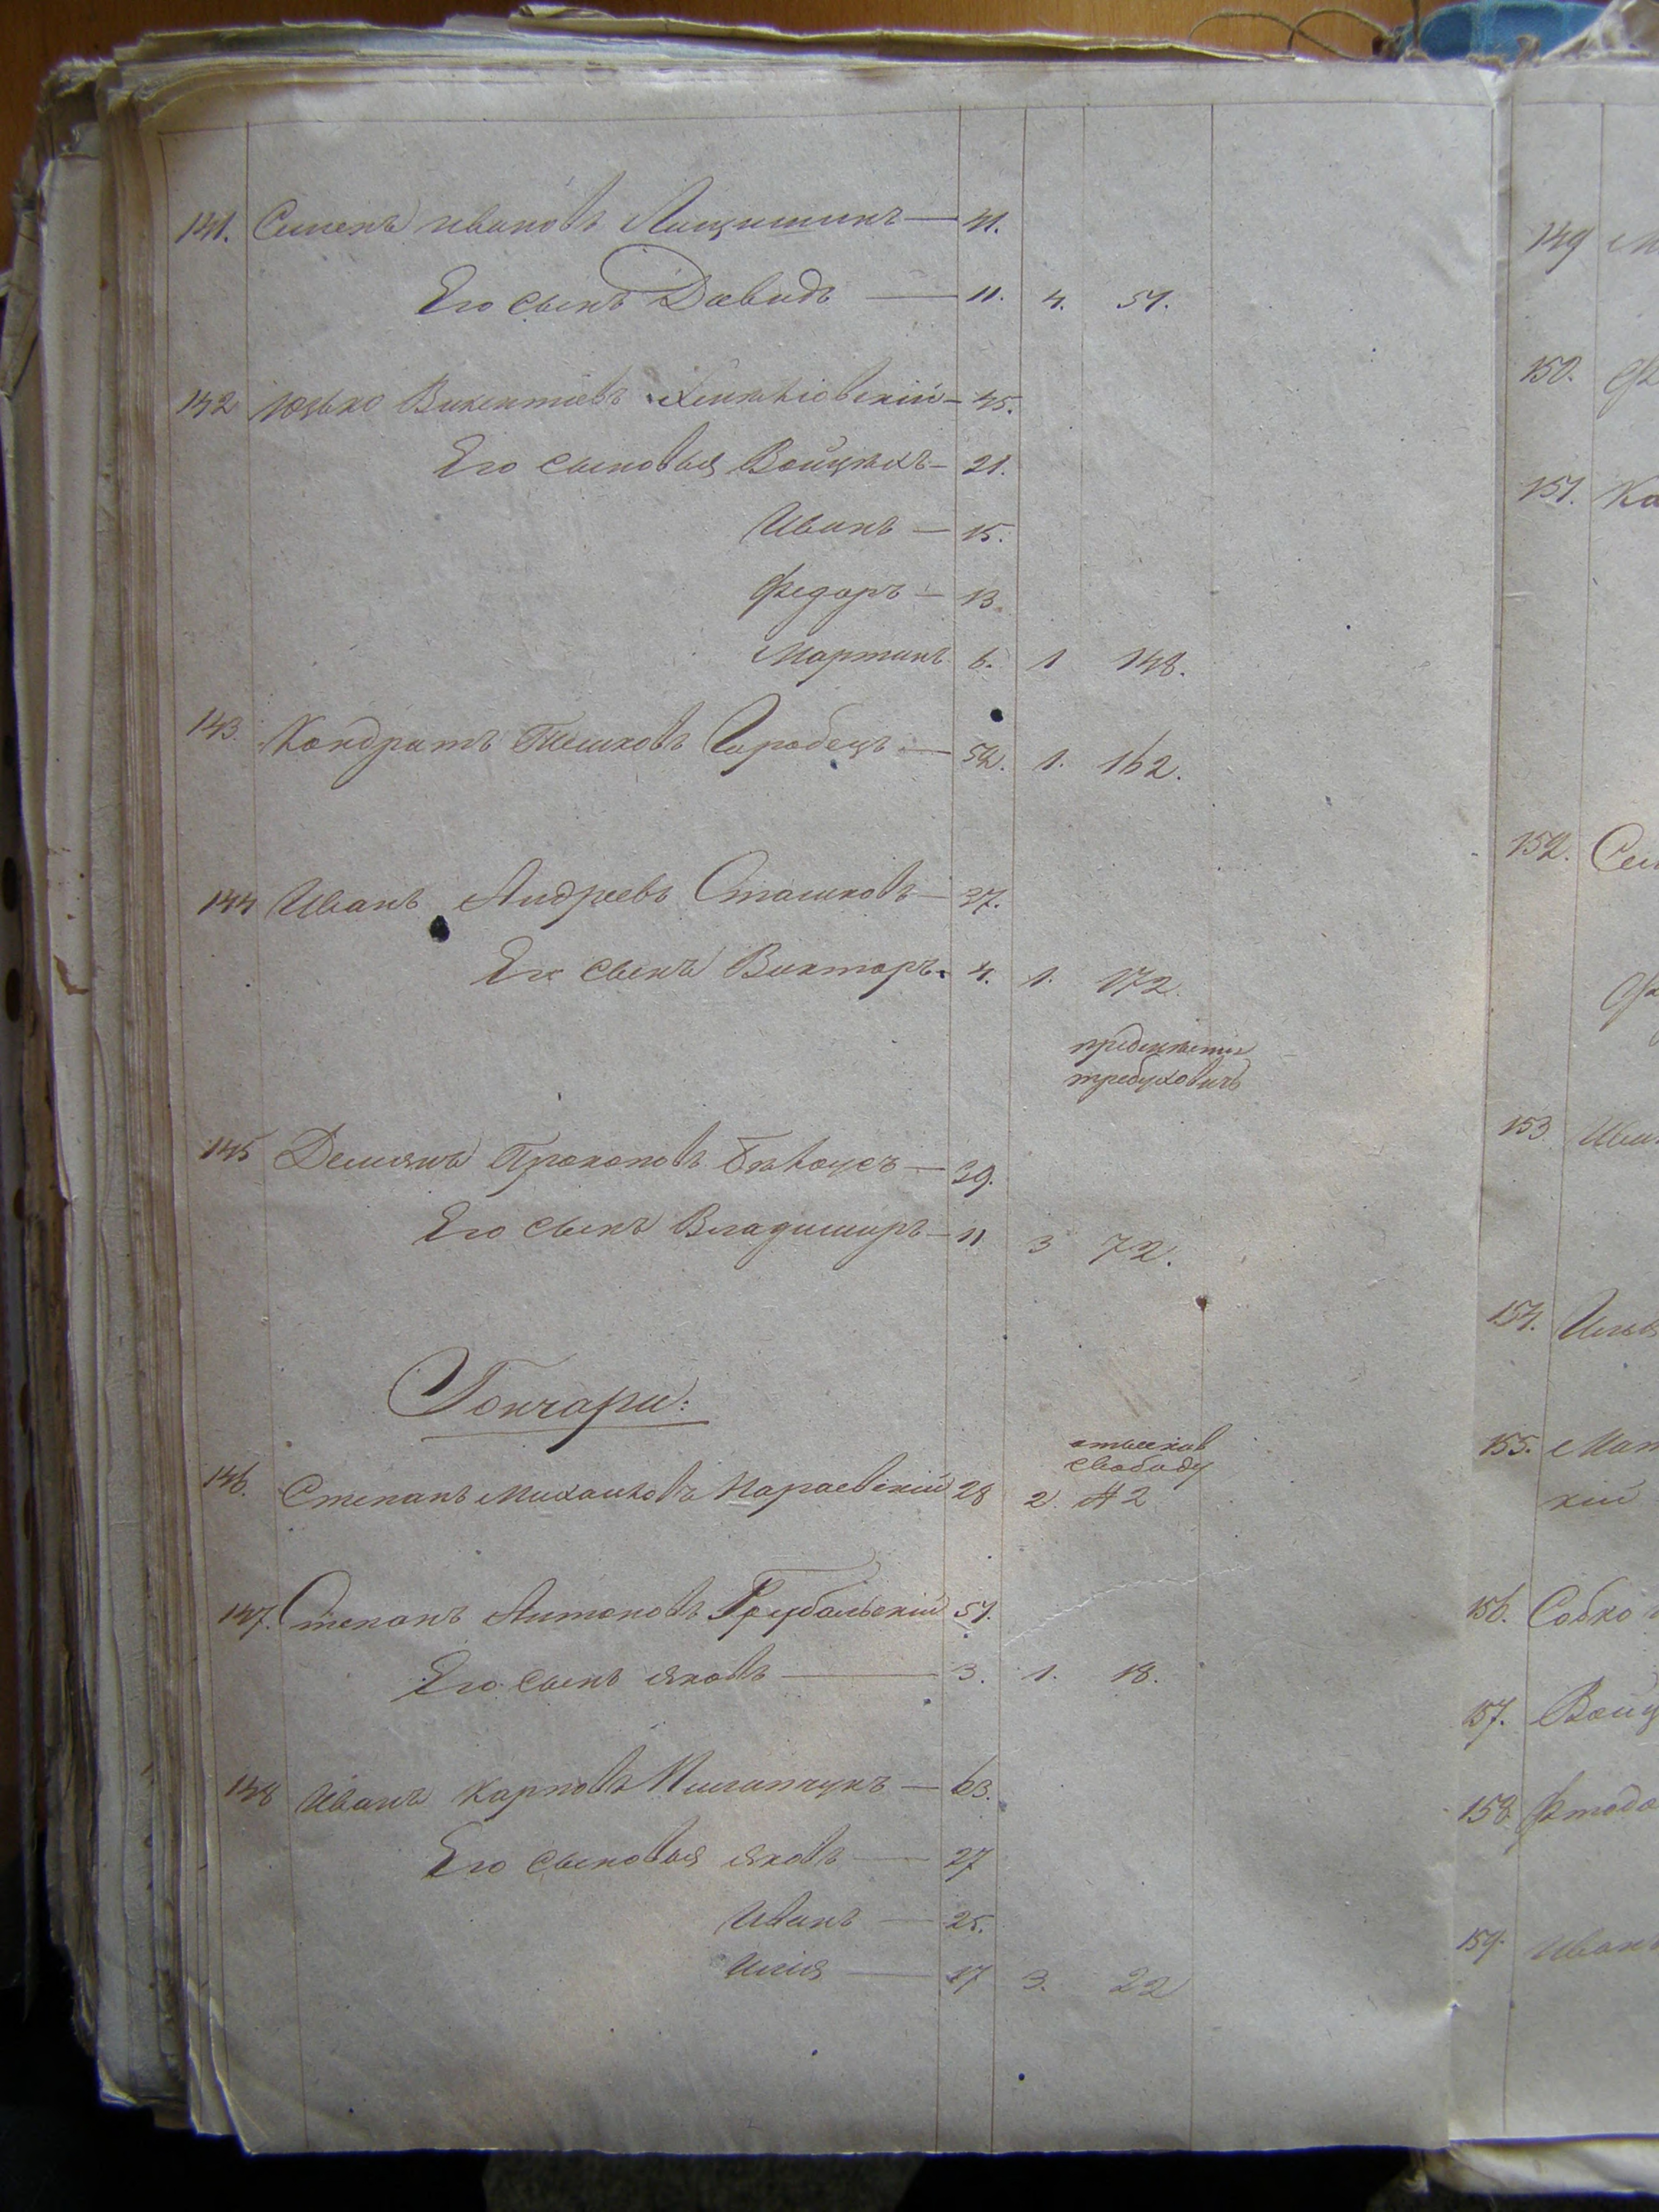 141. Семенъ Ивановъ Лищишинъ — 41.
Его сынъ Давидъ — 11. 4. 51.
142 Юзько Викентіевъ — 45.
Его сыновья Войцѣхъ — 21.
Иванъ — 15.
Федоръ — 13.
Мартинъ 6. 1 148.
143. Кондратъ Горобецъ — 52. 1. 162.
144 Иванъ Андреевъ Сташковъ — 37.
Его сынъ Викторъ 4. 1. 172.
предмѣстье
требуховичъ
145 Демянъ Прокоповъ Бѣлоусъ — 39.
Его сынъ Владимиръ — 11 3 72.
Гончари:
отыскив
свободу
146. Степанъ Михайловъ Караевскій 28 2. № 2
147. Степанъ Антоновъ 51.
Его сынъ Яковъ — 3. 1. 18.
148 Иванъ Карповъ — 63.
Его сыновья Яковъ — 27
Иванъ — 25.
Илія — 17 3. 22
149
150.
151.
152.
153
154.
155.
кій
156. Собко
157.
158.
159.